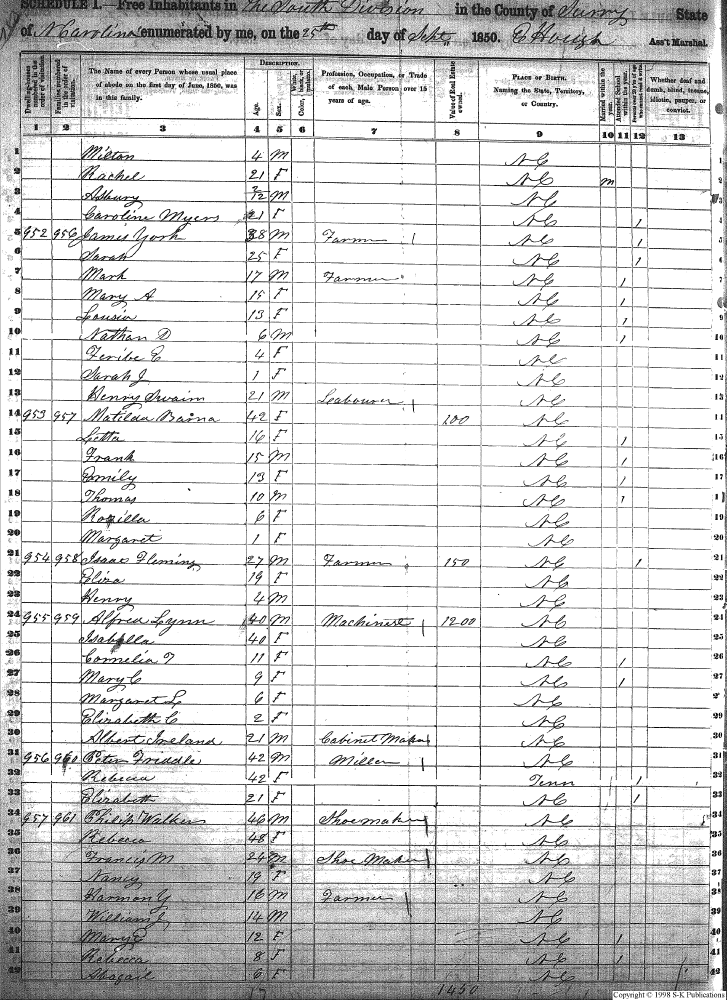 SCHEDULE I.—Free Inhabitants in The South Division in the County of Surry State
of N Carolina enumerated by me, on the 25th day of Sept 1850. E Hough Ass't Marshal.
DESCRIPTION.
The Name of every Person whose usual place of abode on the first day of June, 1850, was in this family.
Age.
Sex.
Profession, Occupation, or Trade of each Male Person over 15 years of age.
Value of Real Estate owned.
PLACE OF BIRTH. Naming the State, Territory, or Country.
Married within the year.
Attended School within the year.
Whether deaf and dumb, blind, insane, idiotic, pauper, or convict.
1 2 3 4 5 6 7 8 9 10 11 12 13
1 Milton 4 M NC
2 Rachel 21 F NC m
3 Asbury 2/12 M NC
4 Caroline Myers 21 F NC 1
5 952 956 James York 38 M Farmer NC 1
6 Sarah 25 F NC 1
7 Mark 17 M Farmer NC 1
8 Mary A 15 F NC 1
9 Lousia 13 F NC 1
10 Nathan D 6 M NC 1
11 Feribe E 4 F NC
12 Sarah J 1 F NC
13 Henry Swaim 21 M Labourer NC
14 953 957 Matilda Barna 42 F 100 NC
15 Letta 16 F NC 1
16 Frank 15 M NC 1
17 Emily 13 F NC 1
18 Thomas 10 M NC 1
19 Rozilla 6 F NC
20 Margaret 1 F NC
21 954 958 Isaac Fleming 27 M Farmer 150 NC 1
22 Eliza 19 F NC
23 Henry 4 M NC
24 955 959 Alfred Lynn 40 M Machinist 1200 NC
25 Isabella 40 F NC
26 Cornelia T 11 F NC 1
27 Mary C 9 F NC 1
28 Margaret L 6 F NC
29 Elizabeth C 2 F NC
30 Albert Ireland 21 M Cabinet Maker NC
31 956 960 Peter Friddle 42 M Miller NC
32 Rebecca 42 F Tenn 1
33 Elizabeth 21 F NC 1
34 957 961 Philip Walker 46 M Shoemaker NC
35 Rebecca 48 F NC
36 Francis M 24 M Shoe Maker NC
37 Nancy 19 F NC
38 Harmon Y 16 M Farmer NC
39 William J 14 M NC
40 Mary E 12 F NC 1
41 Rebecca 8 F NC 1
42 Abagail 6 F NC
17 1450
Copyright © 1998 S-K Publications